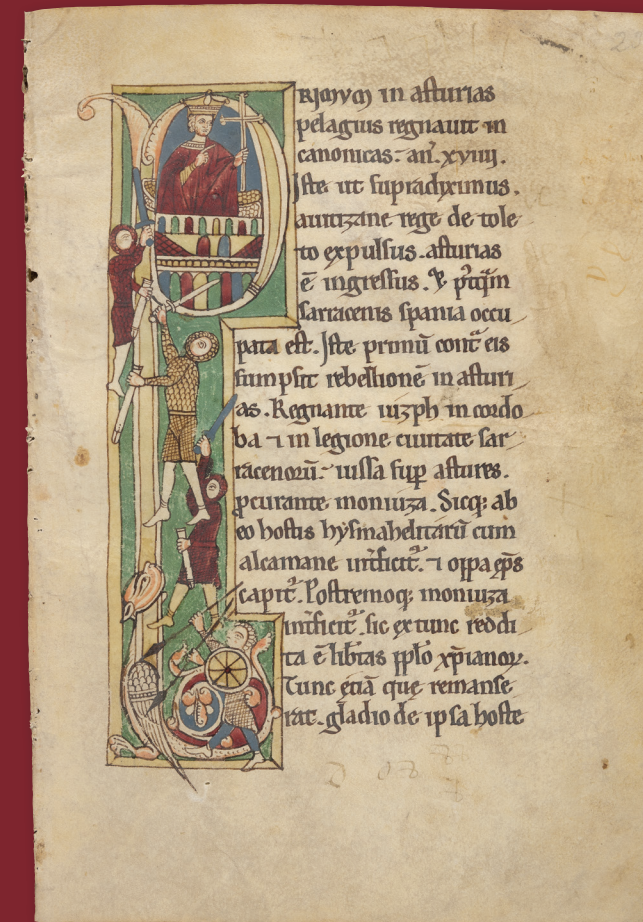 PRIMVM in asturias
pelagius regnauit in
canonicas. an̄. xviiij.
Iste ut supradiximus.
auitizane rege de tole
to expulsus. asturias
ē ingressus. & p̄tq̄m
sarracenis spania occu
pata est. Iste primū cont̄ eis
sumpsit rebellionē in asturi
as. Regnante iuzph in cordo
ba ⁊ in legione ciuitate sar
racenorū. iussa sup̄ astures.
ꝓcurante monuza. Sicq; ab
eo hostis hysmahelitarū cum
alcamane int̄ficit̄. ⁊ oppa ep̄s
capit̄. Postremoq; monuza
int̄ficit̄. sic ex tunc reddi
ta ē lib̄tas pp̄lo xp̄ianoꝝ.
Tunc etiā que remanse
rat. gladio de ipsa hoste